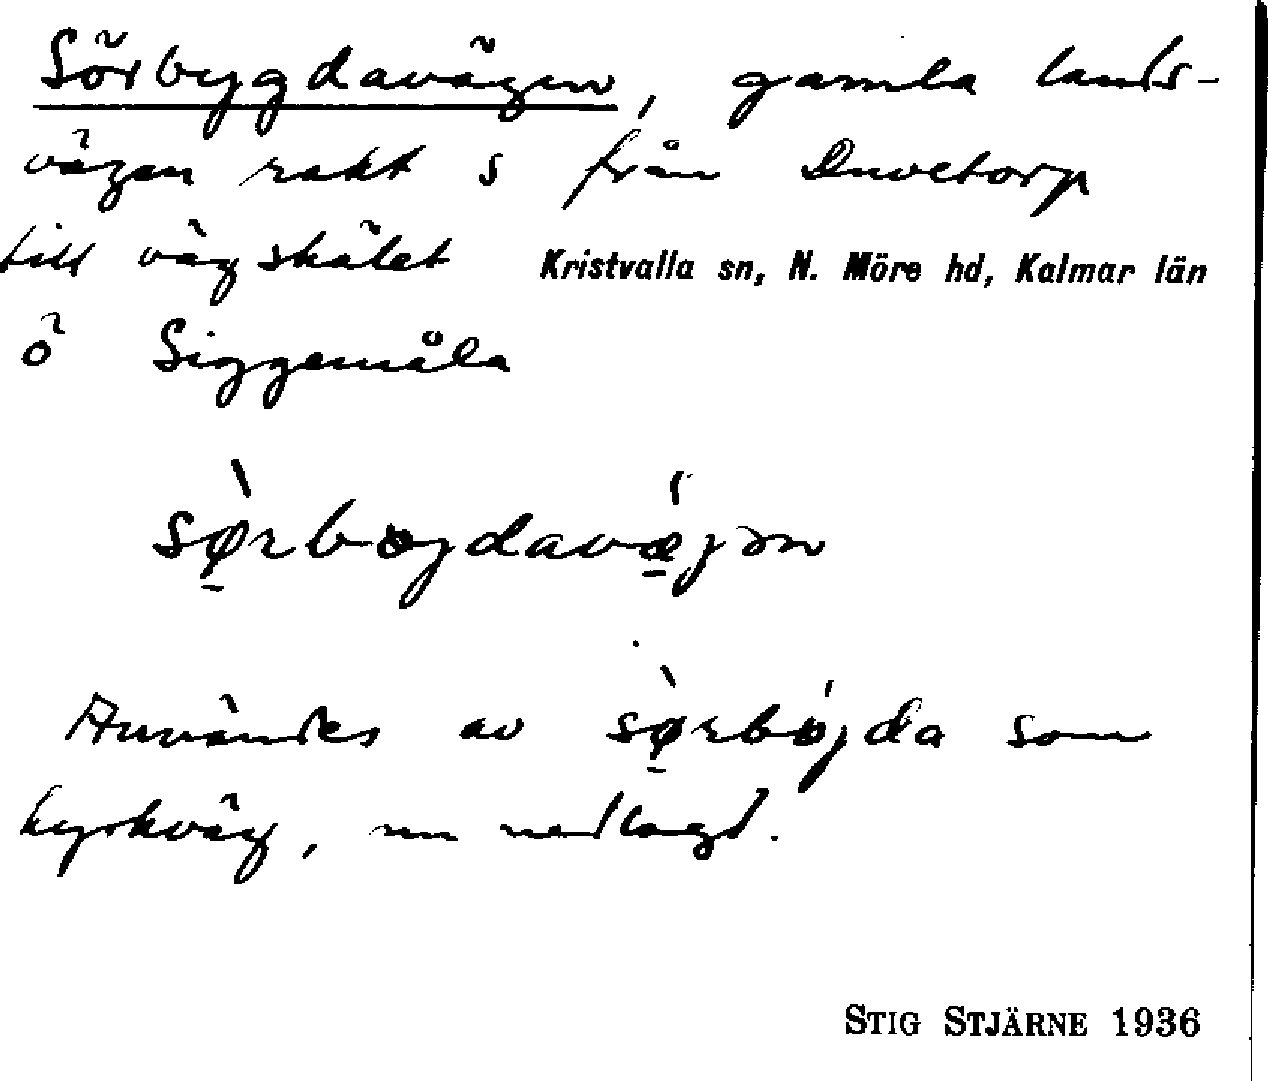 Sörbygdavägen, gamla lands-
vägen rakt s från Duvetorp
till vägskälet
Kristvalla sn, N. Möre hd, Kalmar län
ö Siggemåla
sø̀rbøjdavǽjən
Användes av sø̀rbǿjda som
kyrkväg, nu nedlagd.
STIG STJÄRNE 1936